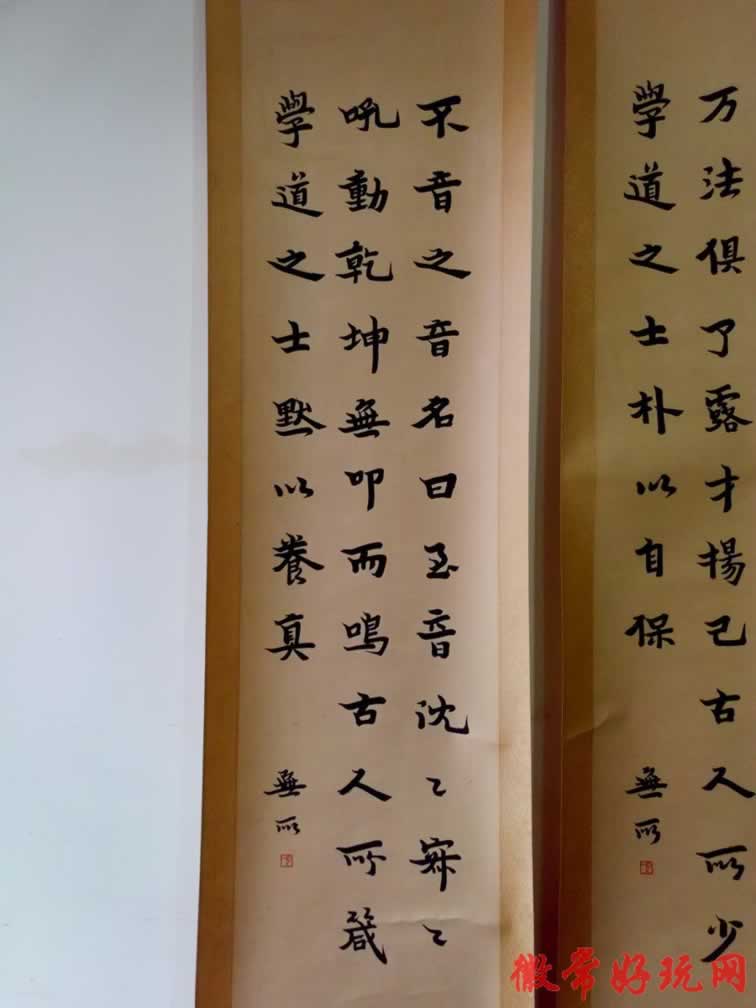 万法俱了露才揚己古人所少
學道之士朴以自保
無所
不音之音名曰至音沈々寂々
吼動乾坤無叩而鳴古人所箴
學道之士默以養真
無所
徽常好玩网